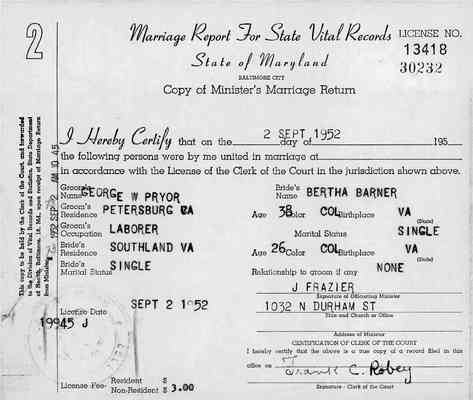 2
Marriage Report For State Vital Records
LICENSE NO.
13418
30232
State of Maryland
BALTIMORE CITY
Copy of Minister's Marriage Return
I Hereby Certify that on the 2 SEPT 1952 day of 195
the following persons were by me united in marriage at
in accordance with the License of the Clerk of the Court in the jurisdiction shown above.
Groom's Name GEORGE W PRYOR Bride's Name BERTHA BARNER
Groom's Residence PETERSBURG VA Age 38 Color COL Birthplace VA
(State)
Groom's Occupation LABORER Marital Status SINGLE
Bride's Residence SOUTHLAND VA Age 26 Color COL Birthplace VA
(State)
Bride's Marital Status SINGLE Relationship to groom if any NONE
J FRAZIER
Signature of Officiating Minister
License Date SEPT 2 1952 1032 N DURHAM ST
Title and Church or Office
19945 J
Address of Minister
CERTIFICATION OF CLERK OF THE COURT
I hereby certify that the above is a true copy of a record filed in this
office on Frank C. Robey
Signature - Clerk of the Court
License Fee- Resident $
Non-Resident $ 3.00
This copy to be held by the Clerk of the Court, and forwarded
to the Division of Vital Records and Statistics, State Department
of Health, Baltimore, 18, Md., upon receipt of Marriage Return
from Minister.